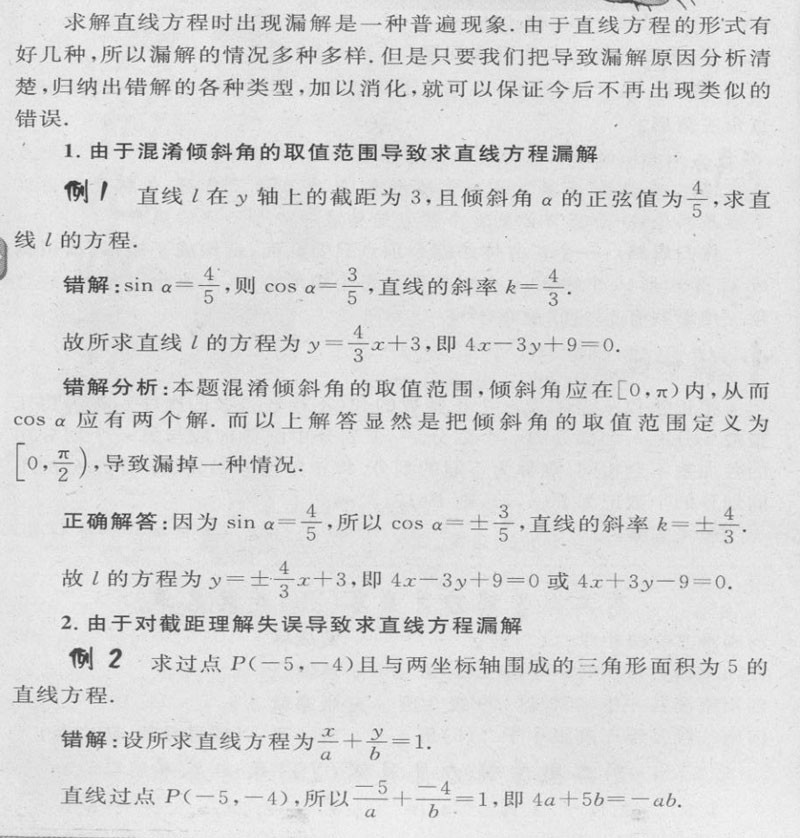 求解直线方程时出现漏解是一种普遍现象.由于直线方程的形式有
好几种,所以漏解的情况多种多样.但是只要我们把导致漏解原因分析清
楚,归纳出错解的各种类型,加以消化,就可以保证今后不再出现类似的
错误.
1.由于混淆倾斜角的取值范围导致求直线方程漏解
例1 直线 l 在 y 轴上的截距为 3,且倾斜角 α 的正弦值为 4/5,求直
线 l 的方程.
错解:sin α=4/5,则 cos α=3/5,直线的斜率 k=4/3.
故所求直线 l 的方程为 y=4/3x+3,即 4x-3y+9=0.
错解分析:本题混淆倾斜角的取值范围,倾斜角应在[0,π)内,从而
cos α 应有两个解.而以上解答显然是把倾斜角的取值范围定义为
[0,π/2),导致漏掉一种情况.
正确解答:因为 sin α=4/5,所以 cos α=±3/5,直线的斜率 k=±4/3.
故 l 的方程为 y=±4/3x+3,即 4x-3y+9=0 或 4x+3y-9=0.
2.由于对截距理解失误导致求直线方程漏解
例2 求过点 P(-5,-4)且与两坐标轴围成的三角形面积为 5 的
直线方程.
错解:设所求直线方程为 x/a+y/b=1.
直线过点 P(-5,-4),所以 -5/a+-4/b=1,即 4a+5b=-ab.